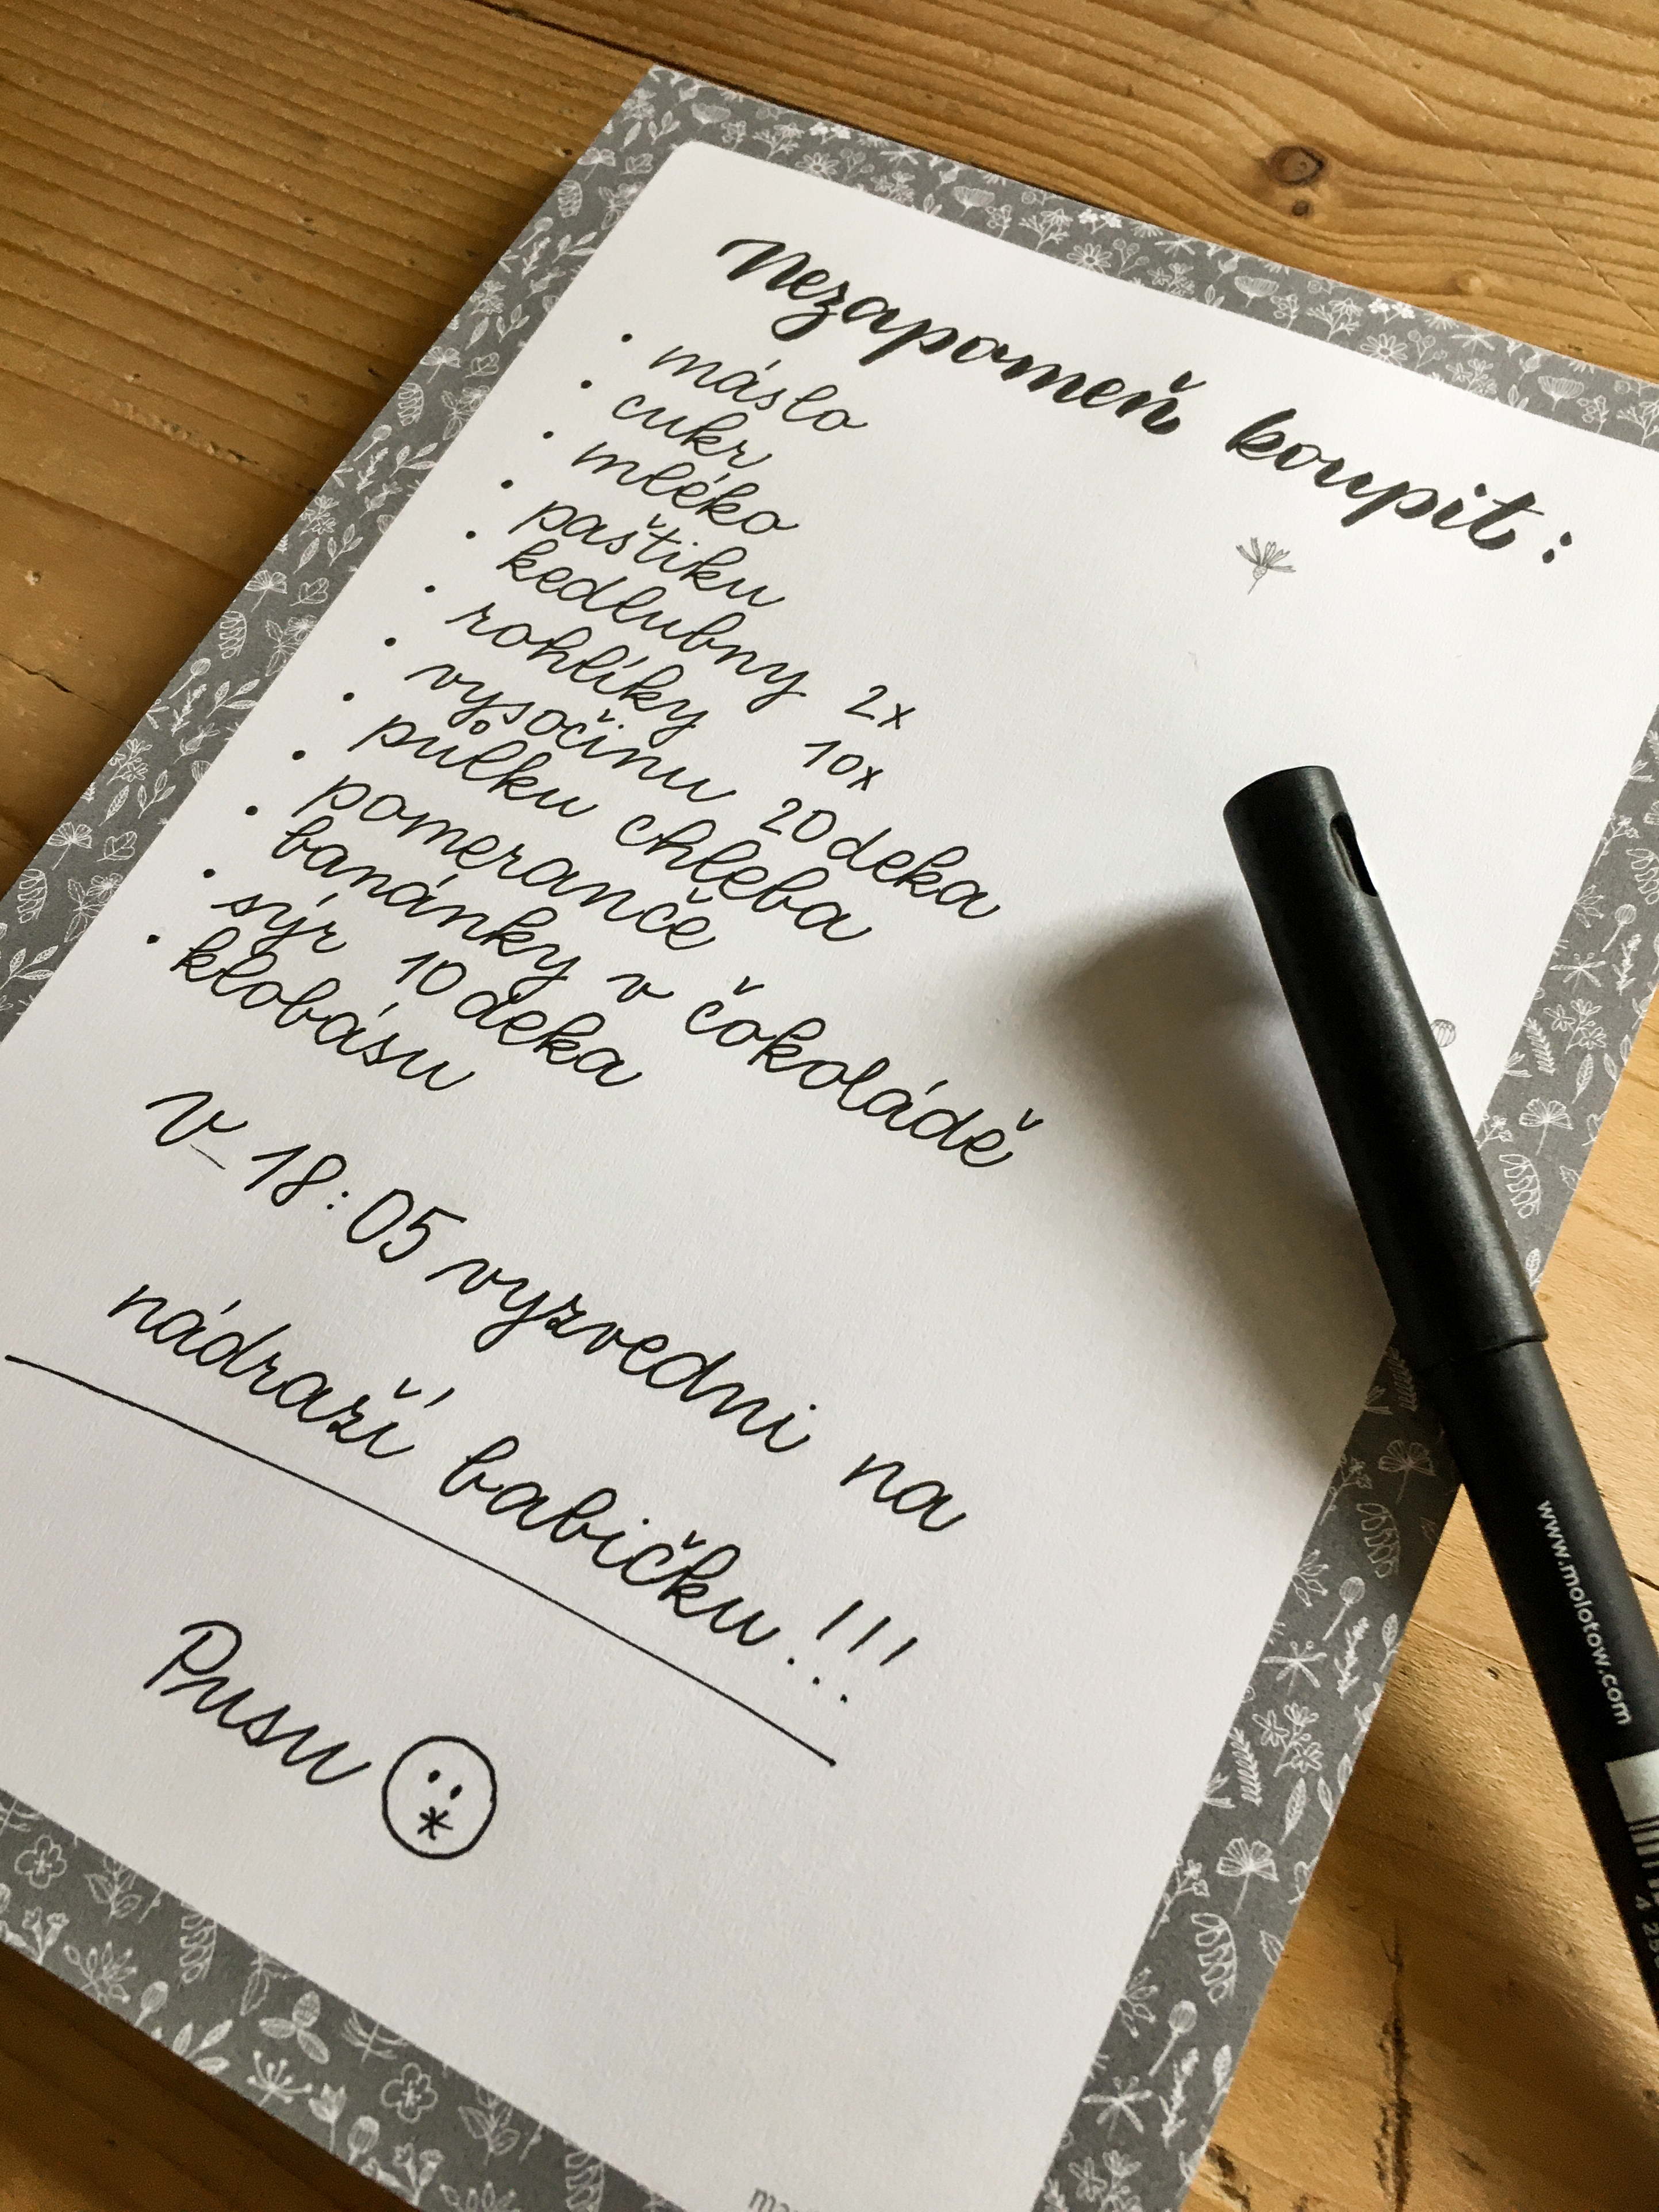 Nezapomeň koupit:
• máslo
• cukr
• mléko
• paštiku
• kedlubny 2x
• rohlíky 10x
• vysočinu 20 deka
• půlku chleba
• pomeranče
• banánky v čokoládě
• sýr 10 deka
• klobásu
V 18:05 vyzvedni na
nádraží babičku!!!
Pusu
www.molotow.com